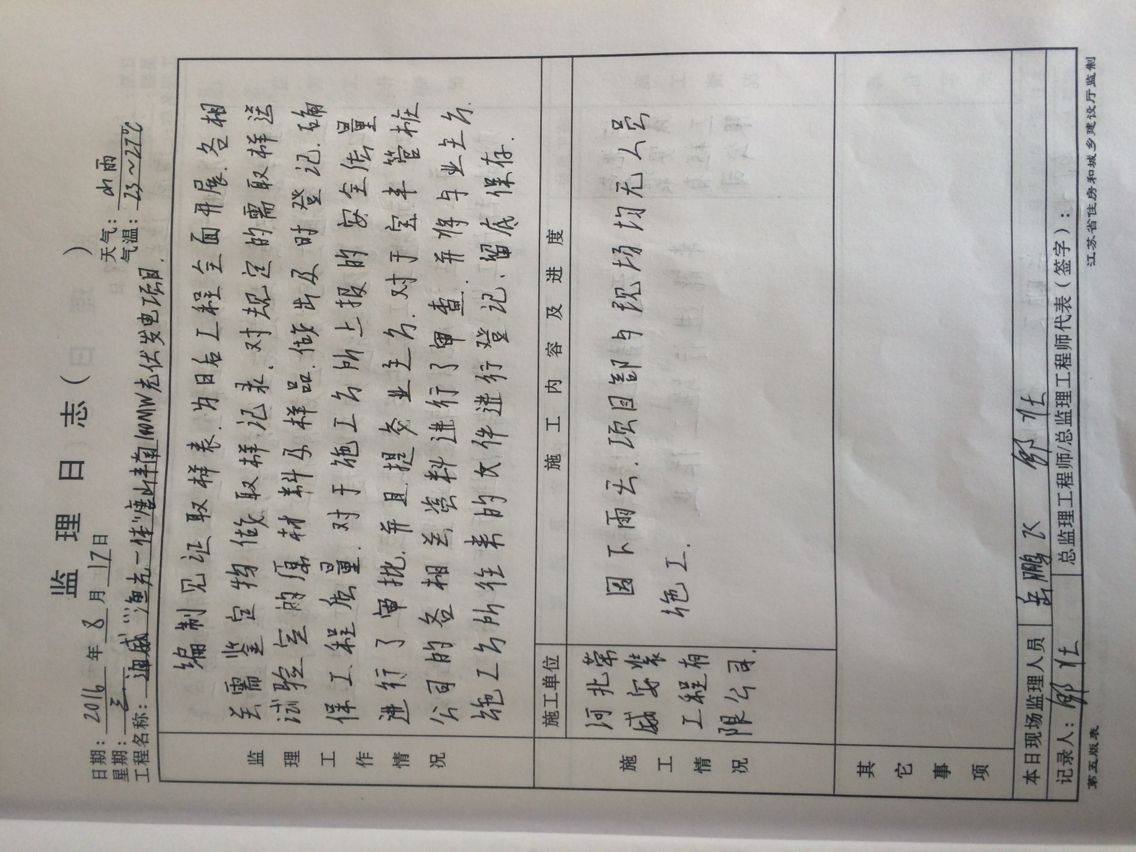 监理日志(日)
日期：2016年8月17日 天气：小雨
星期：三 气温：23～27℃
工程名称：海威"渔光一体"唐山丰南100MW光伏发电项目
监理工作情况
编制见证取样表.为日后工程全面开展.各相
关需鉴定物做取样记录.对规定的需取样送
试验室的原材料及样品.做出及时登记.确
保工程质量.对于施工方所上报的安全质量
进行了审批.并且提交业主方.对于宝丰管桩
公司的各相关资料进行了审查.并将与业主方.
施工方所往来的文件进行登记.留底保存.
施工情况
施工单位 施工内容及进度
河北常
威安装
工程有
限公司.
因下雨天.项目部与现场均无人员
施工.
其它事项
本日现场监理人员 岳鹏飞
记录人： 总监理工程师/总监理工程师代表(签字)：
第五版表 江苏省住房和城乡建设厅监制